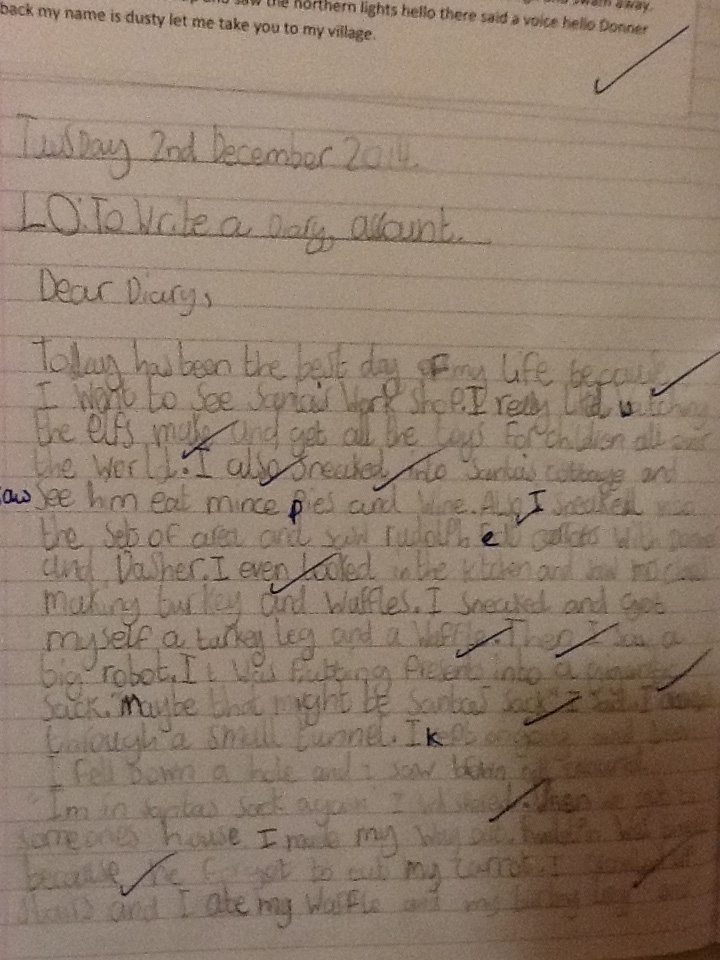 saw the northern lights hello there said a voice hello Donner
back my name is dusty let me take you to my village.
Tuesday 2nd December 2014.
LO: To Write a Diary account.
Dear Diary,
Today has been the best day of my life because
I went to see Santa's Work shop. I really liked watching
the elfs make and get all the toys for children all over
the world. I also sneaked into Santa's cottage and
saw see him eat mince pies and wine. Also I sneaked
the set of area and saw rudolph eat carrots with
and Dasher. I even looked in the kitchen and saw
making turkey and waffles. I sneaked and got
myself a turkey leg and a waffle. Then I saw a
big robot. It was putting presents into a
sack. "Maybe that might be Santas sack" I
through a small tunnel. I kept
I fell down a hole and i saw
"Im in santas sack again" I Then
someones house I made my way out.
because he forgot to eat my carrot. I
stairs and I ate my waffle and my turkey leg